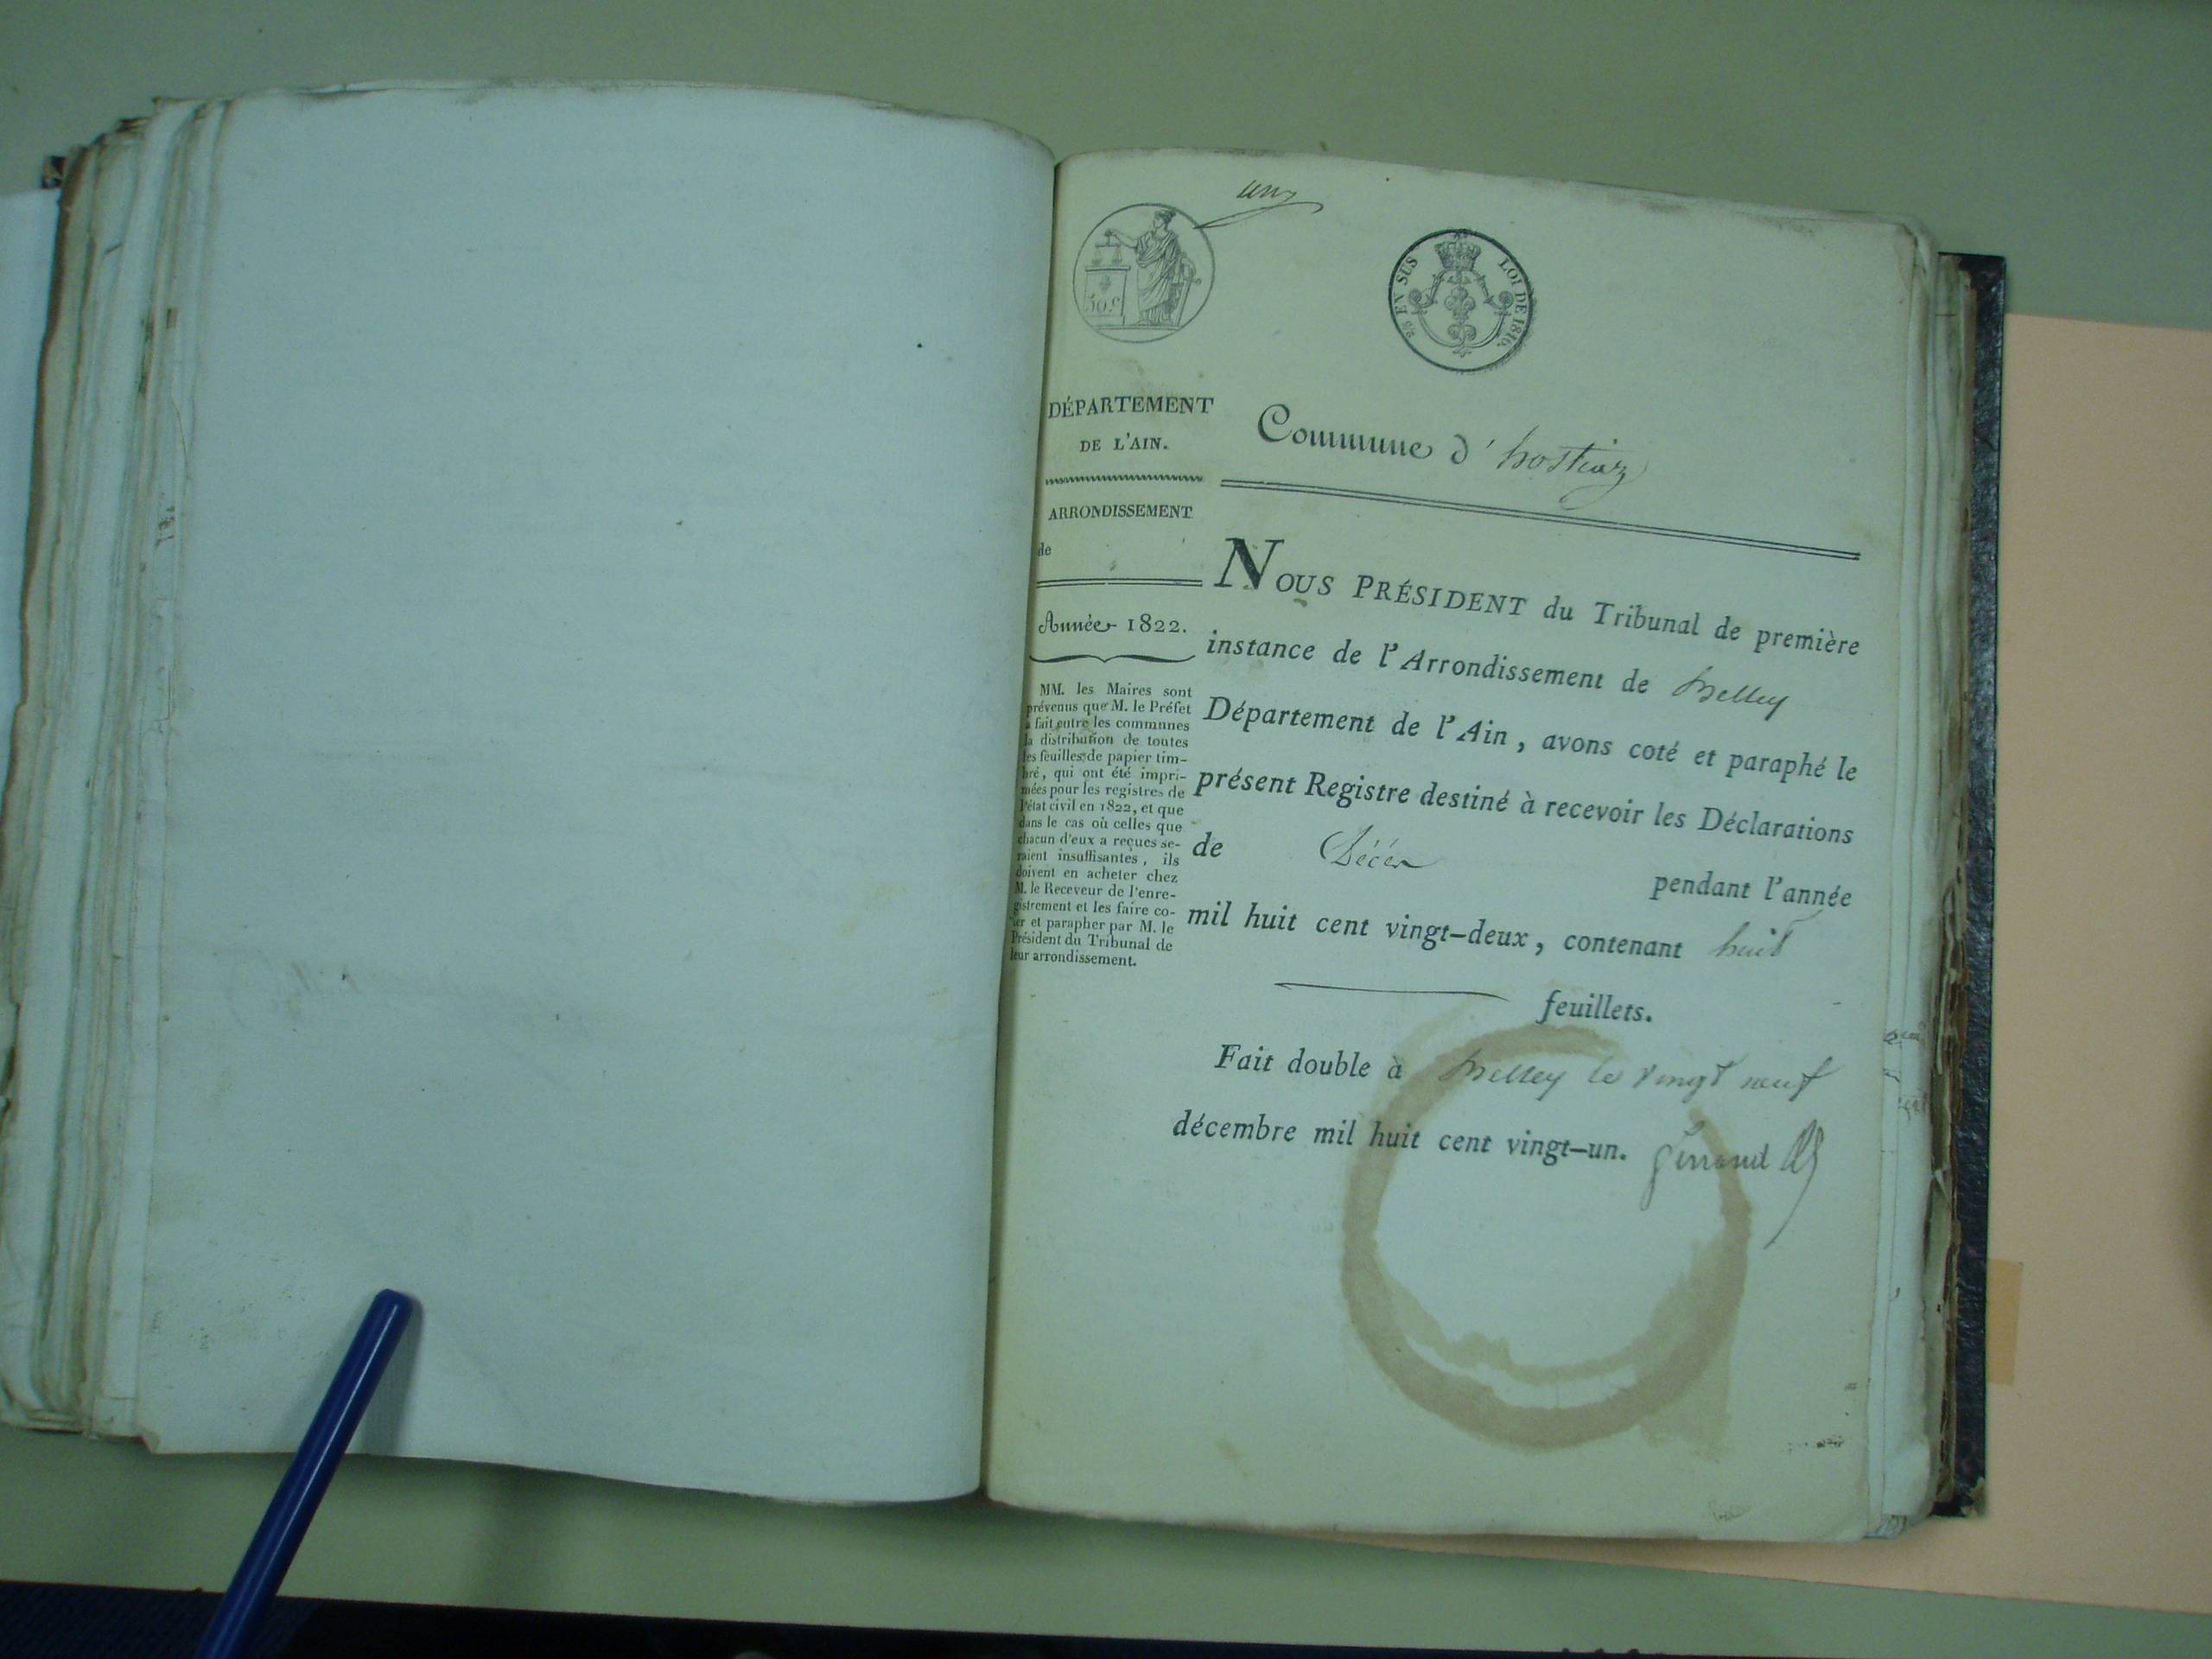 un
50.C
25 EN SUS LOI DE 1816.
DÉPARTEMENT
DE L'AIN.
Commune d' hostiaz
ARRONDISSEMENT
de
Année 1822.
MM. les Maires sont
prévenus que M. le Préfet
a fait entre les communes
la distribution de toutes
les feuilles de papier tim-
bré, qui ont été impri-
mées pour les registres de
l'état civil en 1822, et que
dans le cas où celles que
chacun d'eux a reçues se-
raient insuffisantes, ils
doivent en acheter chez
M. le Receveur de l'enre-
gistrement et les faire co-
ter et parapher par M. le
Président du Tribunal de
leur arrondissement.
NOUS PRÉSIDENT du Tribunal de première
instance de l'Arrondissement de Belley
Département de l'Ain, avons coté et paraphé le
présent Registre destiné à recevoir les Déclarations
de Décès pendant l'année
mil huit cent vingt-deux, contenant huit
feuillets.
Fait double à Belley le vingt neuf
décembre mil huit cent vingt-un.